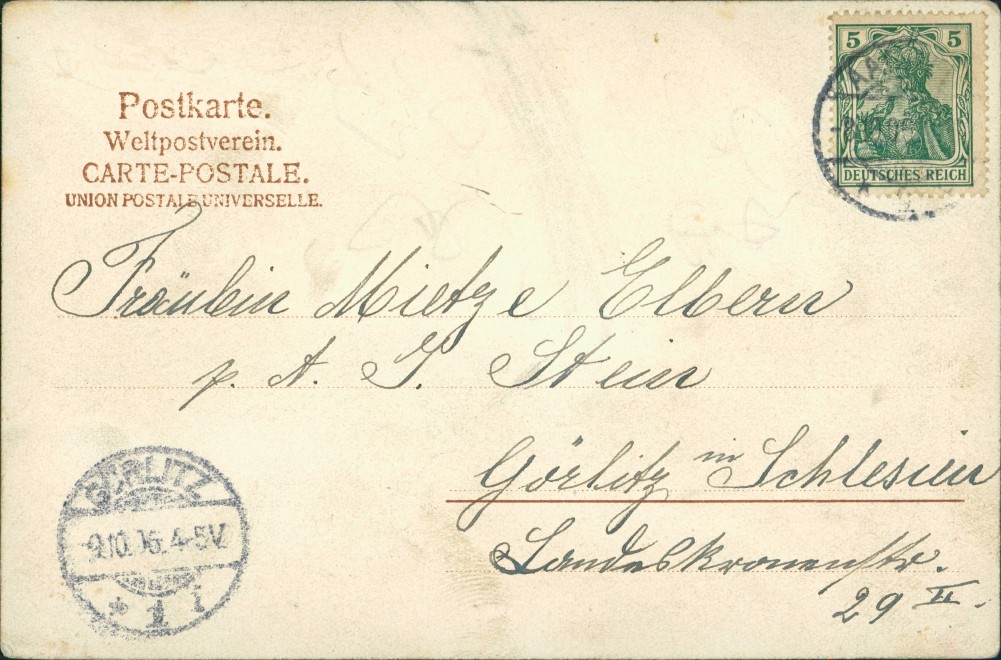 Postkarte.
Weltpostverein.
CARTE-POSTALE.
UNION POSTALE UNIVERSELLE.
5 5
DEUTSCHES REICH
Fräulein Mietze Elbern
p. A. J. Stein
Görlitz in Schlesien
Landeskronenstr.
29 II.
GÖRLITZ
-9.10.06.4-5V.
* 1 i